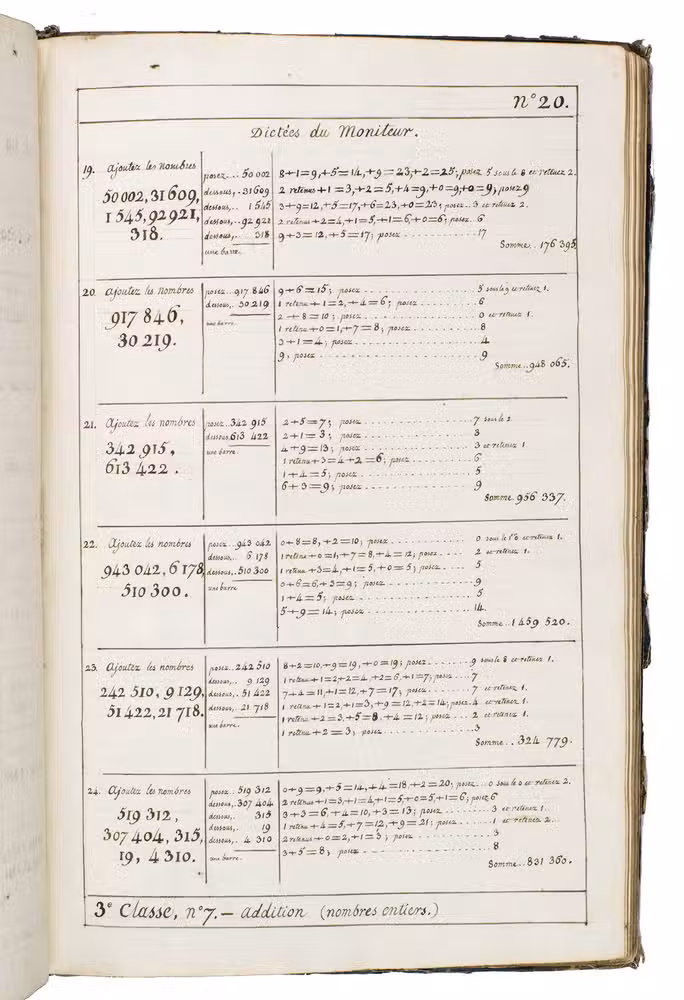 N° 20.
Dictées du Moniteur.
19. Ajoutez les nombres
50 002, 31 609,
1 545, 92 921,
318.
posez... 50 002
dessous,.. 31 609
dessous,.. 1 545
dessous,.. 92 921
dessous,.. 318
une barre.
8+1=9,+5=14,+9=23,+2=25; posez 5 sous le 8 et retenez 2.
2 retenus+1=3,+2=5,+4=9,+0=9,+0=9; posez 9
3+9=12,+5=17,+6=23,+0=23; posez.. 3 et retenez 2.
2 retenus+2=4,+1=5,+1=6,+0=6; posez. 6
9+3=12,+5=17; posez........ 17
Somme.. 176 395.
20. Ajoutez les nombres
917 846,
30 219.
posez... 917 846
dessous,.. 30 219
une barre.
9+6=15; posez............ 5 sous le 9 et retenez 1.
1 retenu+1=2,+4=6; posez....... 6
2+8=10; posez............ 0 et retenez 1.
1 retenu+0=1,+7=8; posez....... 8
3+1=4; posez............ 4
9; posez............ 9
Somme... 948 065.
21. Ajoutez les nombres
342 915,
613 422.
posez. 342 915
dessous,. 613 422
une barre.
2+5=7; posez............ 7 sous le 2
2+1=3; posez............ 3
4+9=13; posez............ 3 et retenez 1
1 retenu+3=4+2=6; posez....... 6
1+4=5; posez............ 5
6+3=9; posez............ 9
Somme. 956 337.
22. Ajoutez les nombres
943 042, 6 178,
510 300.
posez... 943 042
dessous,.. 6 178
dessous,.. 510 300
une barre
0+8=8,+2=10; posez......... 0 sous le 0 et retenez 1.
1 retenu+0=1,+7=8,+4=12; posez... 2 et retenez 1.
1 retenu+3=4,+1=5,+0=5; posez.... 5
0+6=6,+3=9; posez......... 9
1+4=5; posez............ 5
5+9=14; posez............ 14.
Somme.. 1 459 520.
23. Ajoutez les nombres
242 510, 9 129,
51 422, 21 718.
posez.. 242 510
dessous,.. 9 129
dessous,.. 51 422
dessous,.. 21 718
une barre.
8+2=10,+9=19,+0=19; posez....... 9 sous le 8 et retenez 1.
1 retenu+1=2,+2=4,+2=6,+1=7; posez... 7
7+4=11,+1=12,+7=17; posez....... 7 et retenez 1.
1 retenu+1=2,+1=3,+9=12,+2=14; posez. 4 et retenez 1.
1 retenu+2=3,+5=8,+4=12; posez... 2 et retenez 1.
1 retenu+2=3; posez........ 3
Somme... 324 779.
24. Ajoutez les nombres
519 312,
307 404, 315,
19, 4 310.
posez.. 519 312
dessous,.. 307 404
dessous,.. 315
dessous,.. 19
dessous,.. 4 310
une barre.
0+9=9,+5=14,+4=18,+2=20; posez... 0 sous le 0 et retenez 2.
2 retenus+1=3,+1=4,+1=5,+0=5,+1=6; posez 6
3+3=6,+4=10,+3=13; posez....... 3 et retenez 1.
1 retenu+4=5,+7=12,+9=21; posez.... 1 et retenez 2.
2 retenus+0=2,+1=3; posez....... 3
3+5=8; posez............ 8
Somme.. 831 360.
3e Classe, n° 7. — addition (nombres entiers.)